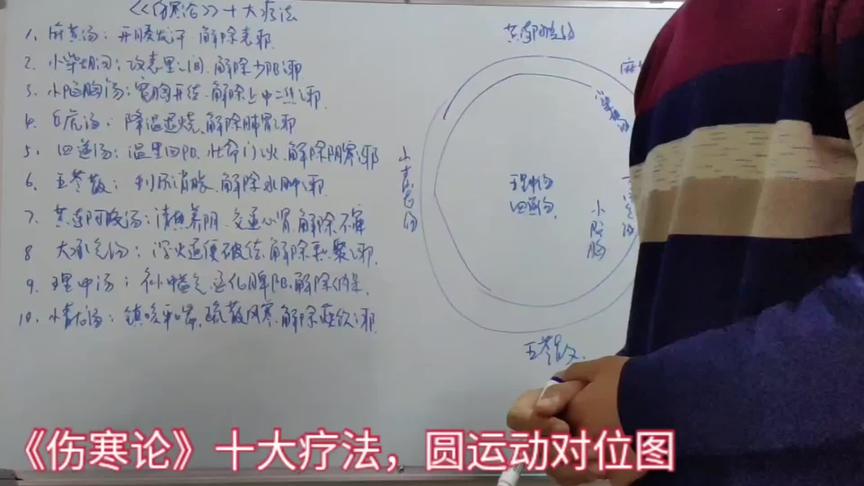 《伤寒论》十大疗法
1、麻黄汤：开腠发汗.解除表邪.
2、小柴胡汤：攻表里之间.解除少阳之邪
3、小陷胸汤：宽胸开结.解除上中二焦之邪.
4、白虎汤：降温退烧.解除肺胃之邪
5、四逆汤：温里回阳.壮命门之火.解除阴寒之邪
6、五苓散：利尿消胀.解除水肿之邪.
7、黄连阿胶汤：清热养阴.交通心肾.解除不寐
8 大承气汤：泻火通便破结.解除热聚之邪.
9、理中汤：补中益气.运化脾阳.解除
10、小青龙汤：镇咳平喘.疏散风寒.解除痰饮之邪.
黄连阿胶汤
麻
小柴胡汤
小青龙汤
理中汤
四逆汤
小陷胸
五苓散.
《伤寒论》十大疗法，圆运动对位图